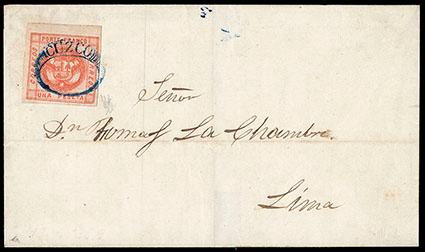 PORTE FRANCO
CORREOS
CUZCO
UNA PESETA
Señor
Dn Thomas La Chambre.
Lima